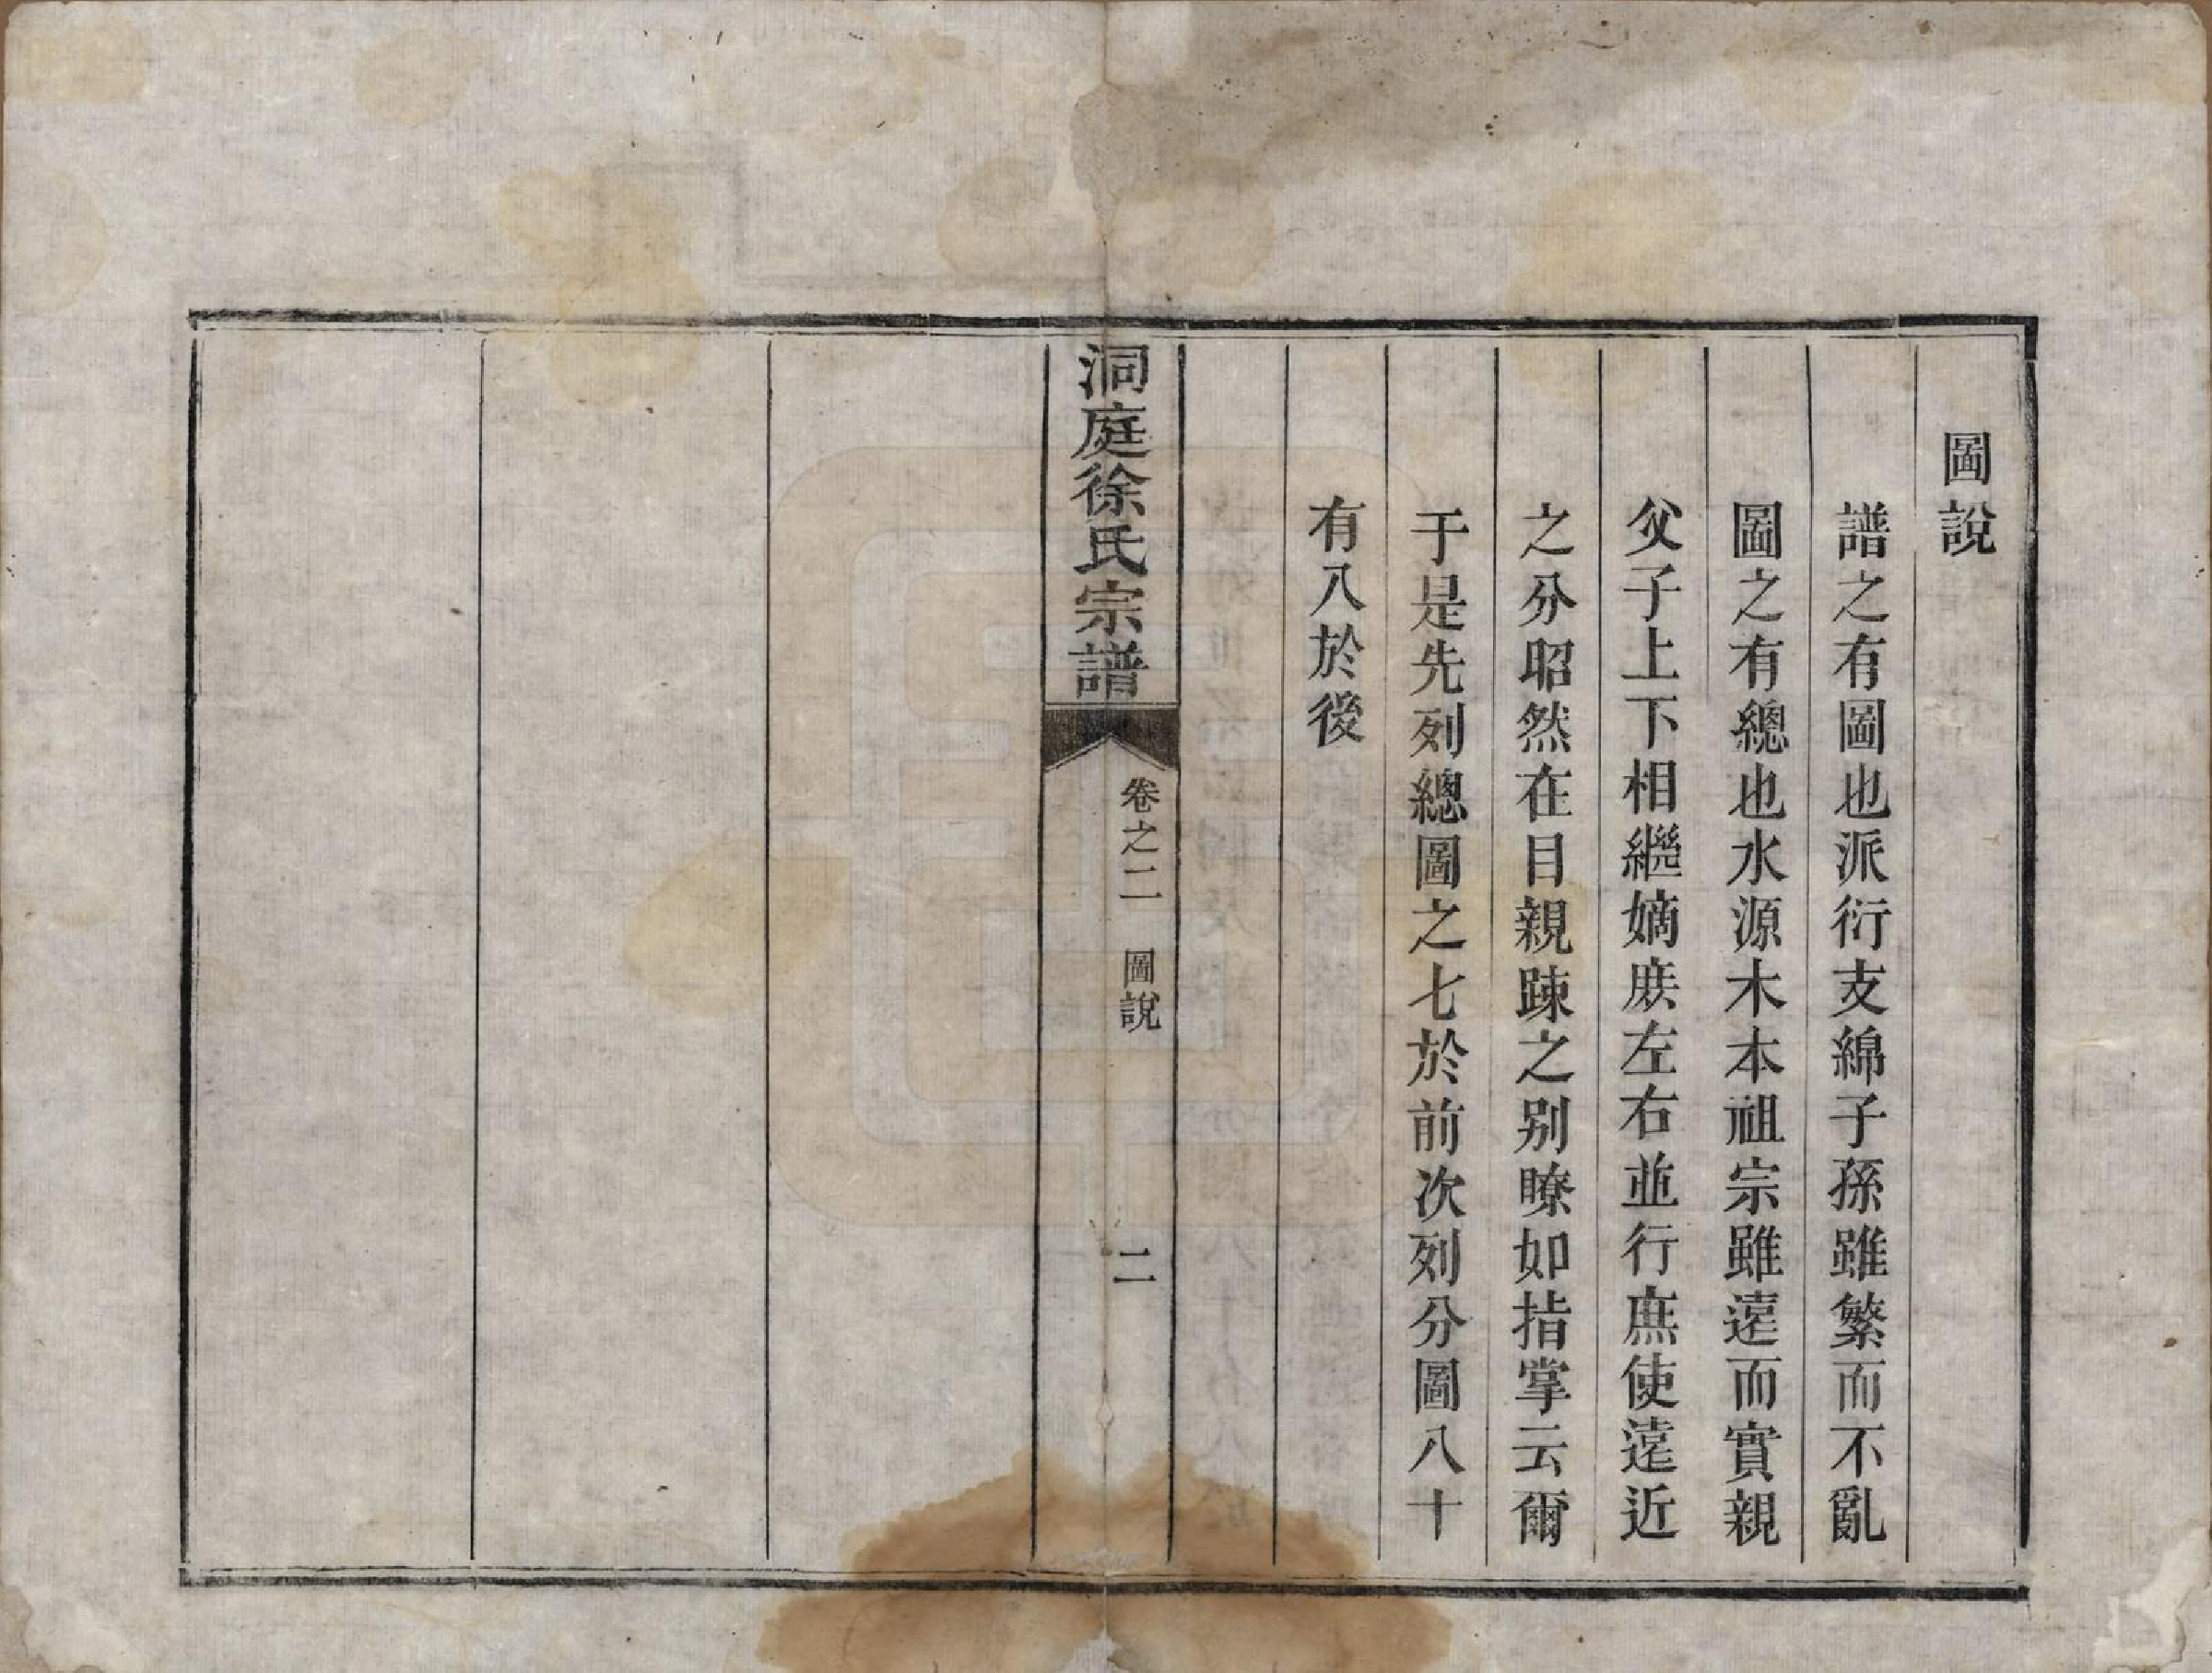 圖說
譜之有圖也派衍支綿子孫雖繁而不亂
圖之有總也水源木本祖宗雖遠而實親
父子上下相繼嫡庶左右並行庶使遠近
之分昭然在目親踈之别瞭如指掌云爾
于是先列總圖之七於前次列分圖八十
有八於後
洞庭徐氏宗譜
卷之二 圖說
二